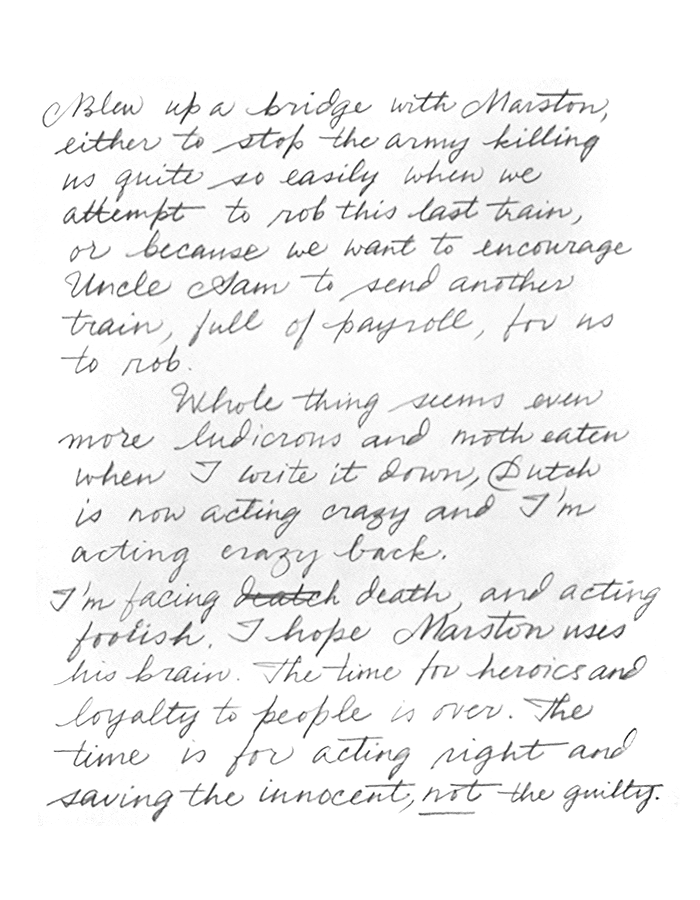 Blew up a bridge with Marston,
either to stop the army killing
us quite so easily when we
attempt to rob this last train,
or because we want to encourage
Uncle Sam to send another
train, full of payroll, for us
to rob.
Whole thing seems even
more ludicrous and moth eaten
when I write it down, Dutch
is now acting crazy and I'm
acting crazy back.
I'm facing death, and acting
foolish. I hope Marston uses
his brain. The time for heroics and
loyalty to people is over. The
time is for acting right and
saving the innocent, not the guilty.